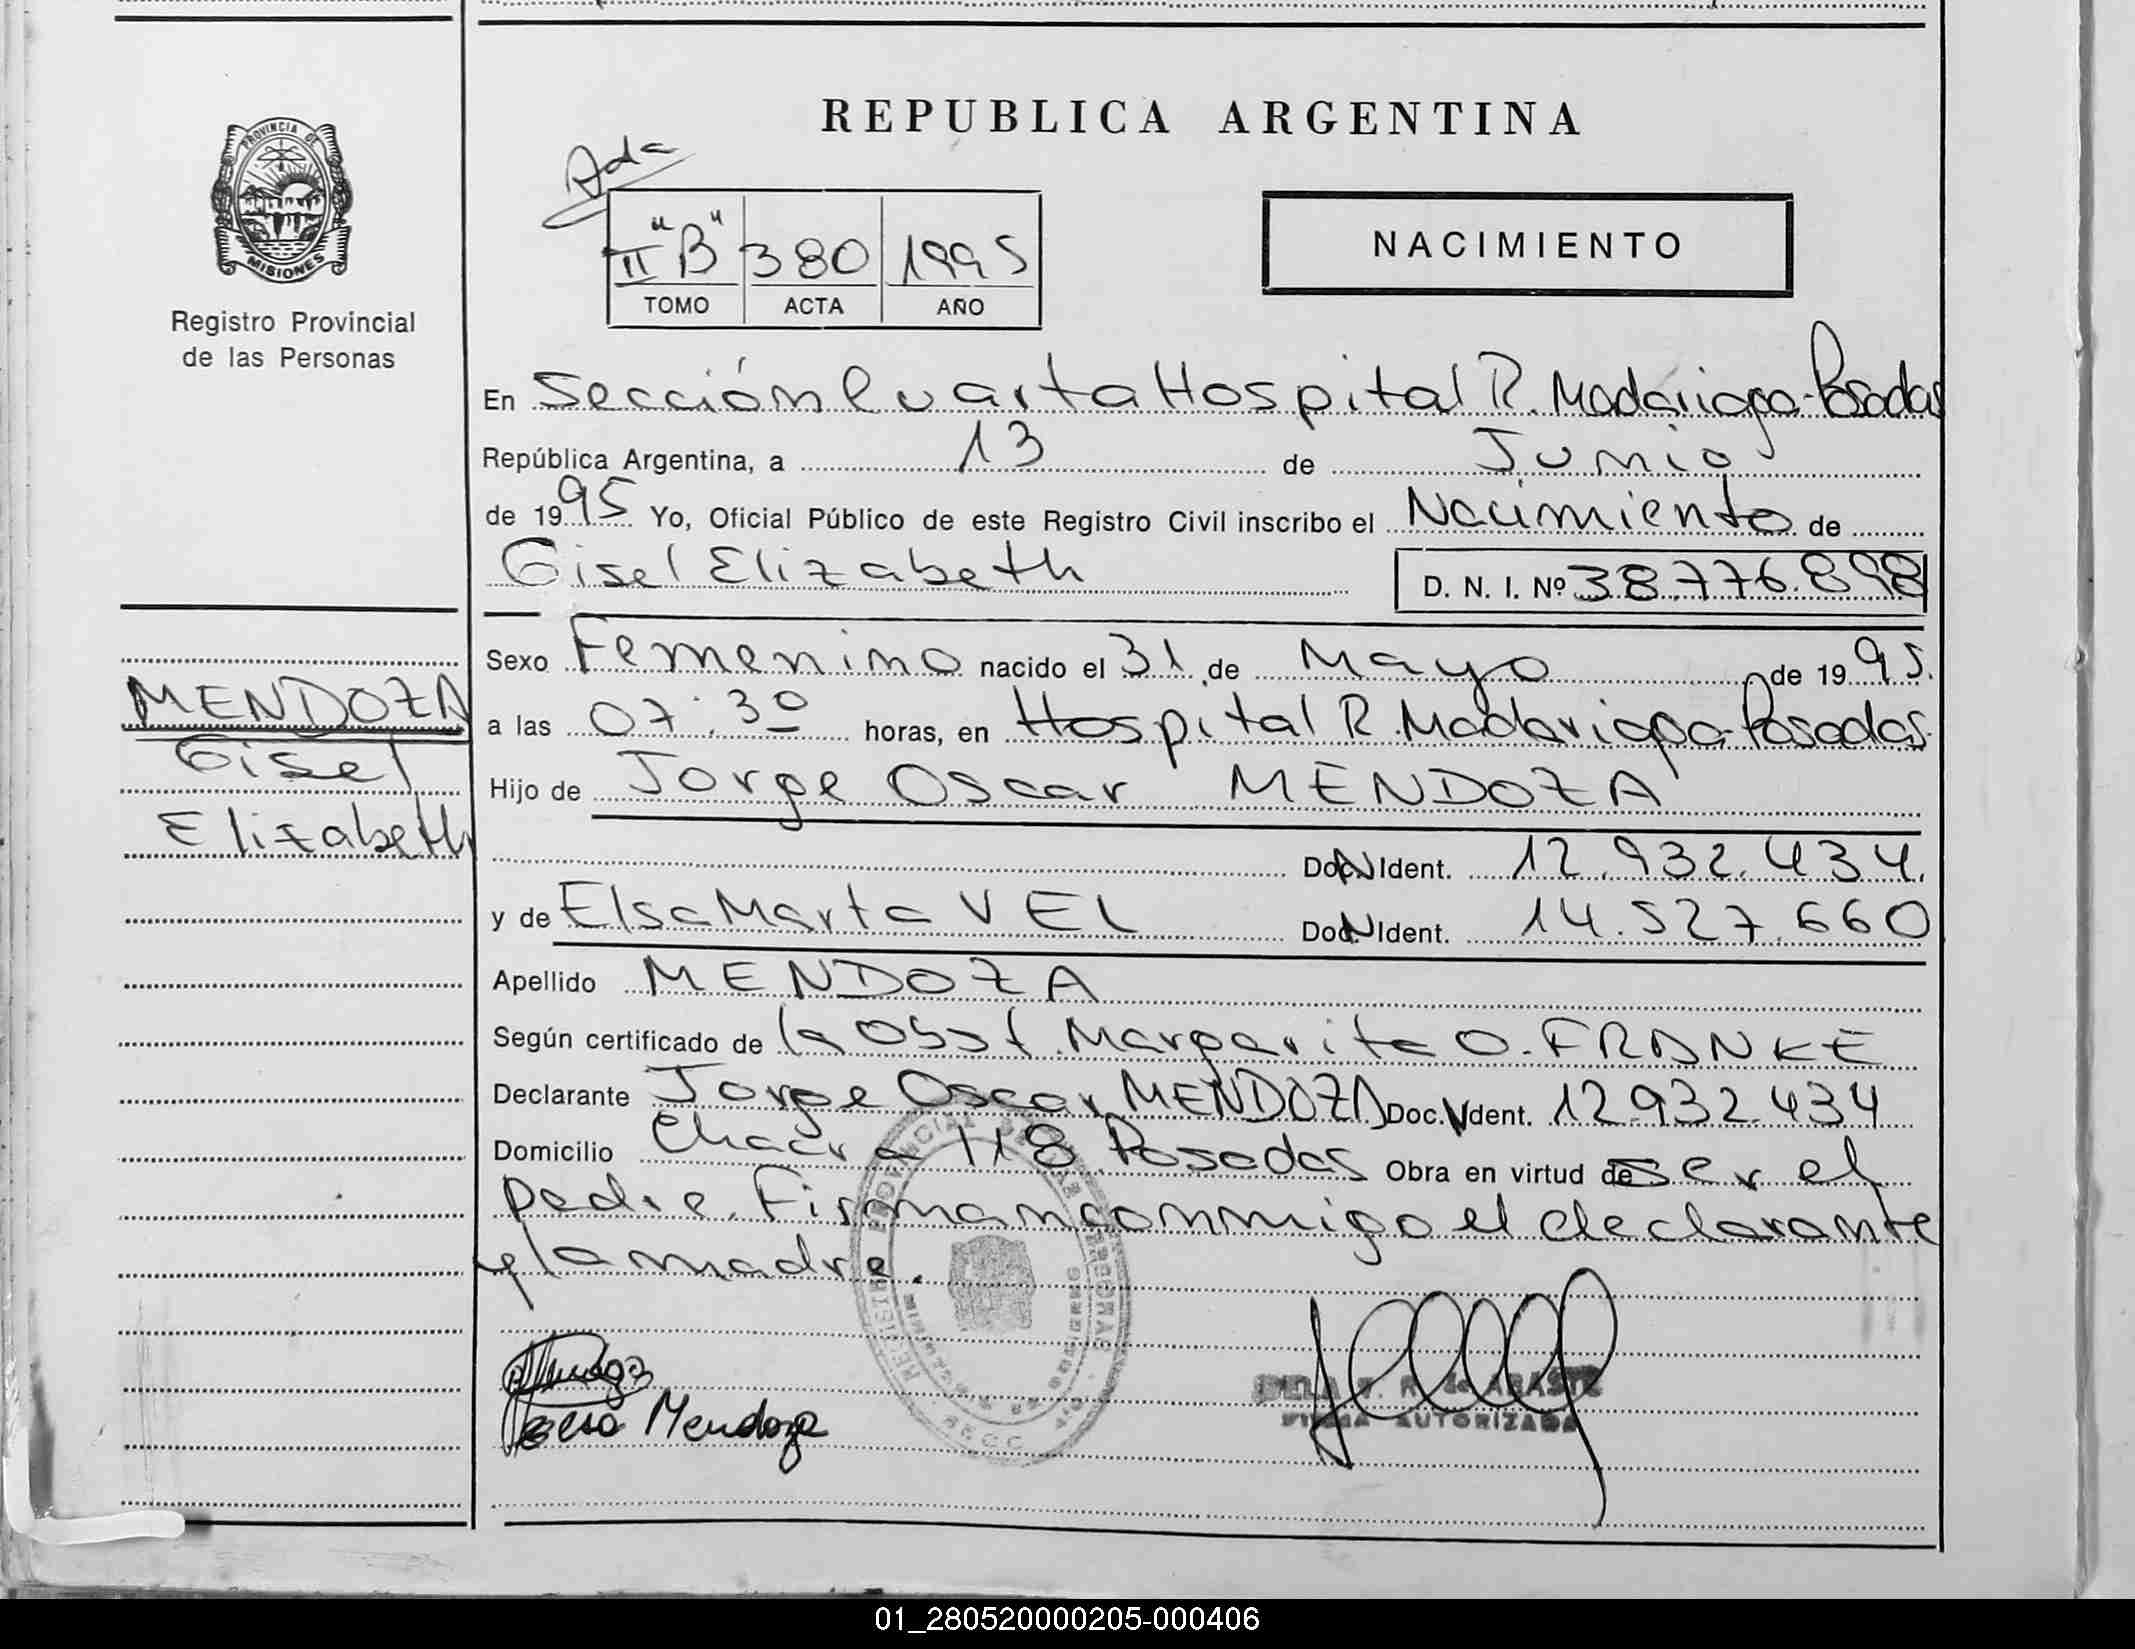 REPUBLICA ARGENTINA
PROVINCIA DE
MISIONES
Registro Provincial
de las Personas
Ada
II "B" 380 1995
TOMO ACTA AÑO
NACIMIENTO
En Sección Cuarta Hospital R. Madariaga-Posadas
República Argentina, a 13 de Junio
de 1995 Yo, Oficial Público de este Registro Civil inscribo el Nacimiento de
Gisel Elizabeth D. N. I. Nº 38.776.898
Sexo Femenino nacido el 31 de Mayo de 1995.
a las 07:30 horas, en Hospital R. Madariaga-Posadas.
Hijo de Jorge Oscar MENDOZA
Doc. N Ident. 12.932.434.
y de Elsa Marta VEL Doc. N Ident. 14.527.660
Apellido MENDOZA
Según certificado de la Obst. Margarita O. FRANKE
Declarante Jorge Oscar MENDOZA Doc. N Ident. 12.932.434
Domicilio Chacra 118 Posadas Obra en virtud de ser el
padre. Firman conmigo el declarante
y la madre.
MENDOZA
Gisel
Elizabeth
Mendoza
DE ABASTE
FIRMA AUTORIZADA
01_280520000205-000406